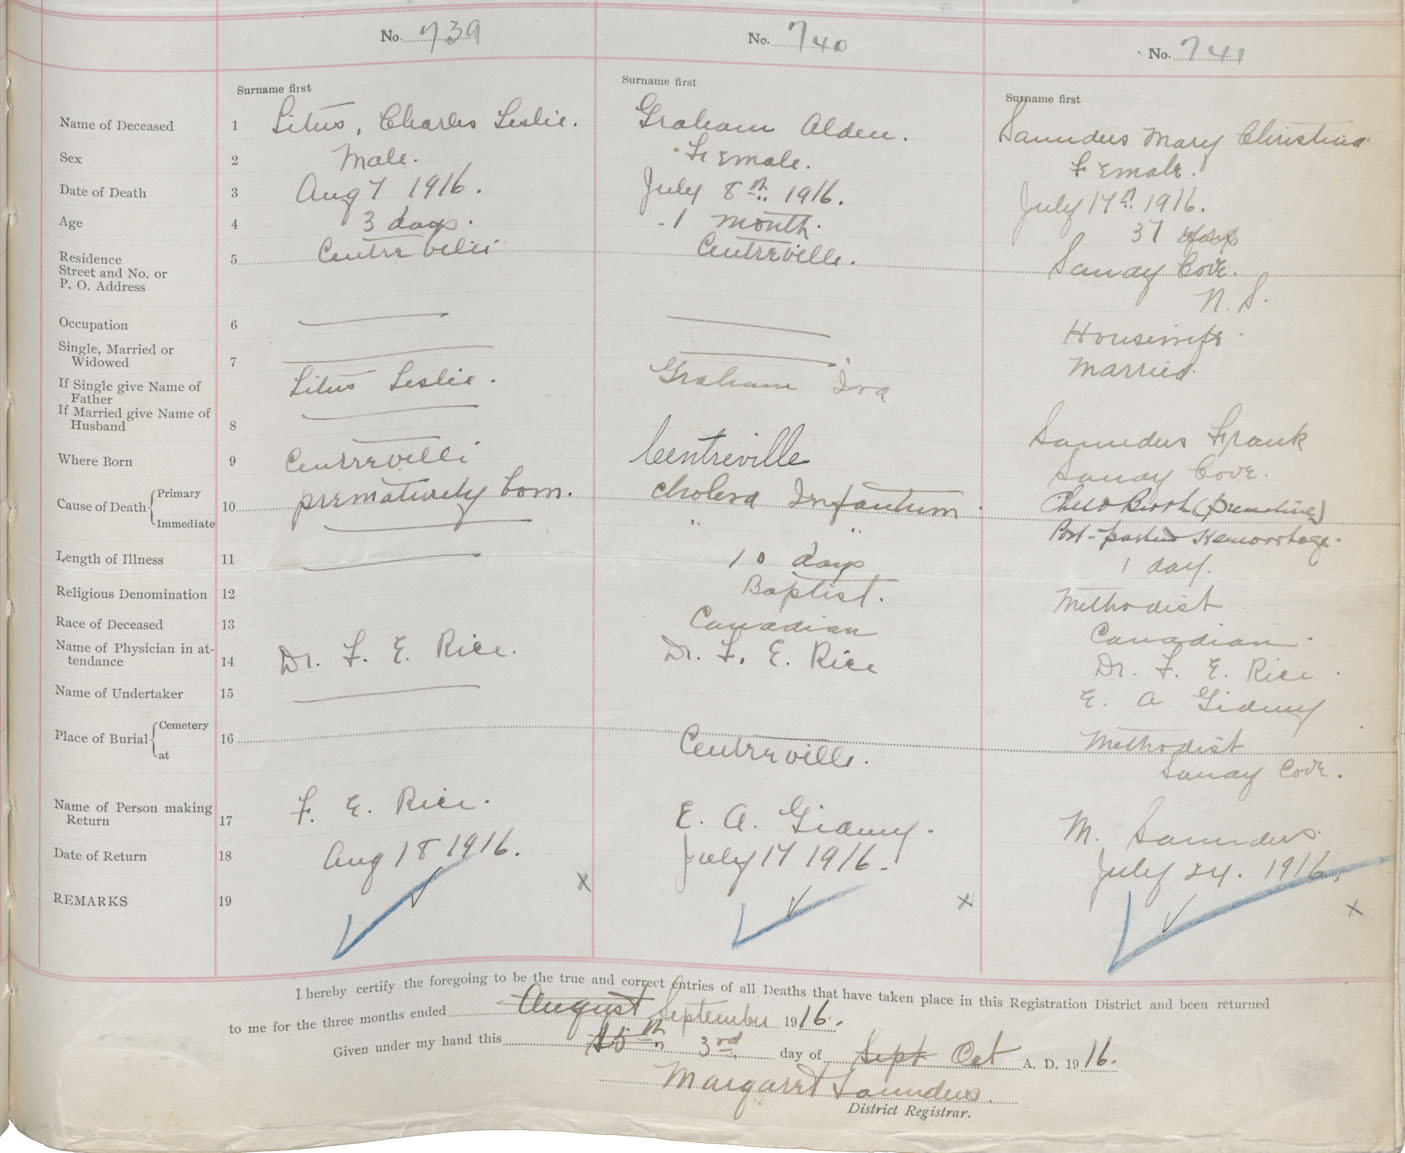 No. 739 No. 740 No. 741
Surname first Surname first Surname first
Name of Deceased 1 Litus, Charles Leslie. Graham Alden. Saunders Mary Christina
Sex 2 Male. Female. Female.
Date of Death 3 Aug 7 1916. July 8th 1916. July 17th 1916.
Age 4 3 days. 1 month. 37
Residence
Street and No. or
P. O. Address
5 Centreville Centreville. Sandy Cove.
N. S.
Occupation 6 Housewife
Single, Married or
Widowed 7 Married.
If Single give Name of
Father
Litus Leslie. Graham Ira
If Married give Name of
Husband 8 Saunders Frank
Where Born 9 Centreville Centreville Sandy Cove.
Cause of Death { Primary
Immediate
10 prematurely born. Cholera Infantum. Child Birth (premature)
" " Post-partum Hemorrhage.
Length of Illness 11 10 days 1 day.
Religious Denomination 12 Baptist. Methodist
Race of Deceased 13 Canadian Canadian.
Name of Physician in at-
tendance 14 Dr. F. E. Rice. Dr. F. E. Rice Dr. F. E. Rice.
Name of Undertaker 15 E. A Gidney
Place of Burial { Cemetery
at
16 Centreville. Methodist
Sandy Cove.
Name of Person making
Return 17 F. E. Rice. E. A. Gidney. M. Saunders
Date of Return 18 Aug 18 1916. July 17 1916. July 24. 1916.
REMARKS 19 x x x
I hereby certify the foregoing to be the true and correct entries of all Deaths that have taken place in this Registration District and been returned
to me for the three months ended August September 1916.
Given under my hand this 15th 3rd day of Sept Oct A. D. 1916.
Margaret Saunders.
District Registrar.